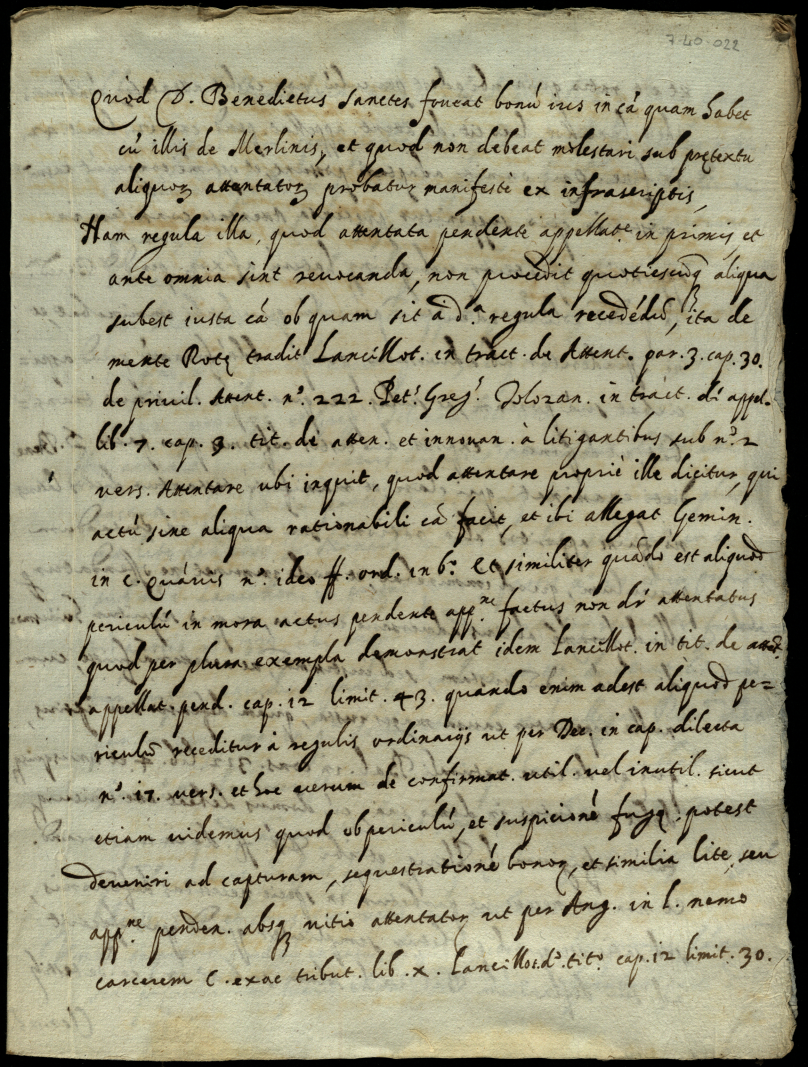 7-40-022
Quod D. Benedictus Sanctes foveat bonũ ius in cã quam habet
cũ illis de Merlinis, et quod non debeat molestari sub prętextu
aliquoꝝ attentatoꝝ probatur manifestè ex infrascriptis,
Nam regula illa, quod attentata pendente appellat.e in primis, et
ante omnia sint revocanda, non procedit quotiescũqꝫ aliqua
subest iusta cã ob quam sit à d.a regula recedẽdũ, ita de
mente Rotę tradit Lancillot. in tract. de Attent. par. 3. cap. 30.
de privil. Attent. n.o 222. Pet.s Greg.s Tolozan. in tract. dẽ appel.
lib. 7. cap. 3. tit. de atten. et innovan. à litigantibus sub n.o 2
vers. Attentare ubi inquit, quod attentare propriè ille dicitur, qui
actũ sine aliqua rationabili cã facit, et ibi allegat Gemin.
in c. quávis n.o ideo ff. ord. in 6.o Et similiter quãdo est aliquod
periculũ in mora actus pendente app.ne factus non dr̃ attentatus
quod per plura exempla demonstrat idem Lancillot. in tit. de
appellat. pend. cap. 12 limit. 43. quando enim adest aliquod pe=
riculũ receditur à regulis ordinarijs ut per Dec. in cap. dilecta
n.o 17. vers. et hoc verum de confirmat. util. vel inutil. sicut
etiam videmus quod ob periculũ, et suspicionẽ fugę potest
deveniri ad capturam, sequestrationẽ bonoꝝ, et similia lite, seu
app.ne penden. absqꝫ vitio attentatoꝝ ut per Ang. in l. nemo
carcerem C. exac tribut. lib. x. Lancillot. d.o tit.o cap. 12 limit. 30.